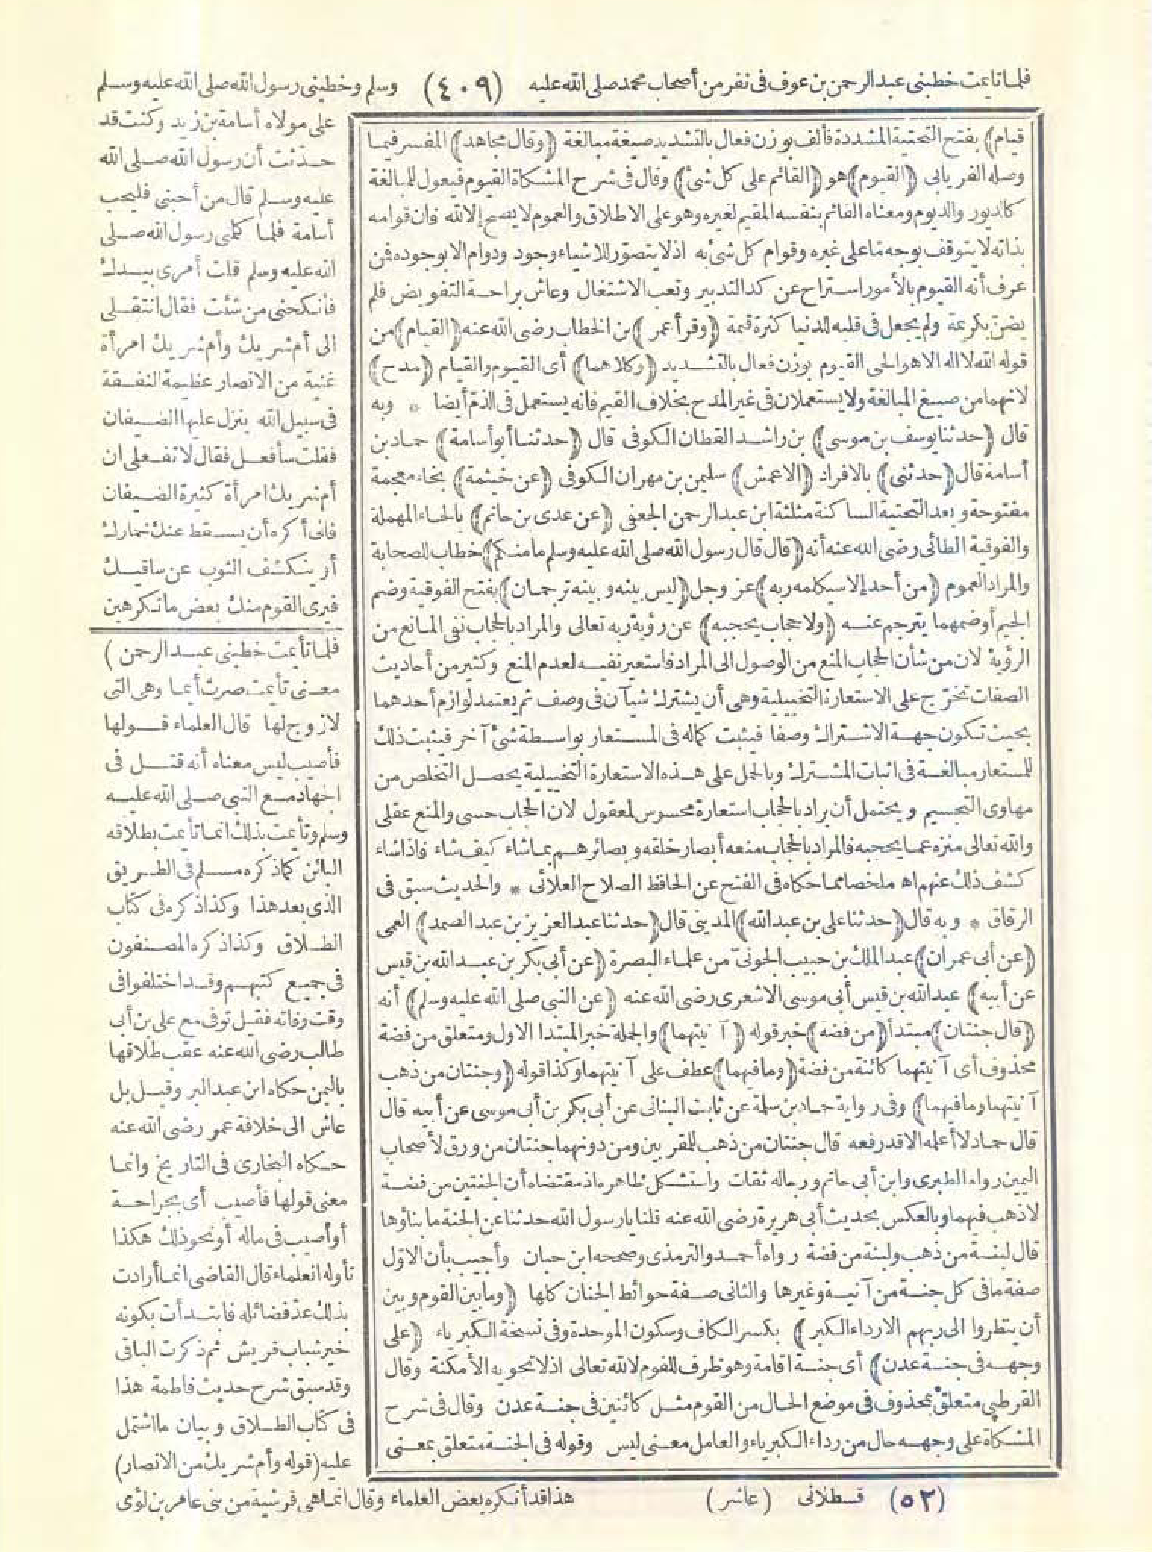 فلما تأيمت خطبنى عبد الرحمن بن عوف فى نفر من أصحاب محمد صلى الله عليه (٤٠٩) وسلم وخطبنى رسول الله صلى الله عليه وسلم
قيام) بفتح التحتية المشددة فألف بوزن فعال بالتشديد صيغة مبالغة (وقال مجاهد) المفسر فيما
وصله الفريابى (القيوم) هو (القائم على كل شئ) وقال فى شرح المشكاة القيوم فيعول للمبالغة
كالديور والديوم ومعناه القائم بنفسه المقيم لغيره وهو على الاطلاق والعموم لا يصح إلا لله فان قوامه
بذاته لا يتوقف بوجه ما على غيره وقوام كل شئ به اذ لا يتصوّر للاشياء وجود ودوام الا بوجوده فمن
عرف أنه القيوم بالأمور استراح عن كد التدبير وتعب الاشتغال وعاش براحة التفويض فلم
يضن بكريمة ولم يجعل فى قلبه للدنيا كثرة قيمة (وقرأ عمر) بن الخطاب رضى الله عنه (القيام) من
قوله الله لا اله الا هو الحى القيوم بوزن فعال بالتشديد (وكلاهما) أى القيوم والقيام (مدح)
لانهما من صيغ المبالغة ولا يستعملان فى غير المدح بخلاف القيم فانه يستعمل فى الذم أيضا * وبه
قال (حدثنا يوسف بن موسى) بن راشد القطان الكوفى قال (حدثنا أبو أسامة) حماد بن
أسامة قال (حدثنى) بالافراد (الاعمش) سليمن بن مهران الكوفى (عن خيثمة) بخاء معجمة
مفتوحة وبعد التحتية الساكنة مثلثة ابن عبد الرحمن الجعفى (عن عدى بن حاتم) بالحاء المهملة
والفوقية الطائى رضى الله عنه أنه (قال قال رسول الله صلى الله عليه وسلم ما منكم) خطاب للصحابة
والمراد العموم (من أحد إلا سيكلمه ربه) عز وجل (ليس بينه وبينه ترجمان) بفتح الفوقية وضم
الجيم أو ضمهما يترجم عنه (ولا حجاب يحجبه) عن رؤية ربه تعالى والمراد بالحجاب نفى المانع من
الرؤية لان من شأن الحجاب المنع من الوصول الى المراد فاستعير نفيه لعدم المنع وكثير من أحاديث
الصفات تخرّج على الاستعارة التخييلية وهى أن يشترك شيآن فى وصف ثم يعتمد لوازم أحدهما
بحيث تكون جهة الاشتراك وصفا فيثبت كماله فى المستعار بواسطة شئ آخر فيثبت ذلك
للمستعار مبالغة فى اثبات المشترك وبالحمل على هذه الاستعارة التخييلية يحصل التخلص من
مهاوى التجسيم ويحتمل أن يراد بالحجاب استعارة محسوس لمعقول لان الحجاب حسى والمنع عقلى
والله تعالى منزه عما يحجبه فالمراد بالحجاب منعه أبصار خلقه وبصائرهم بما شاء كيف شاء فاذا شاء
كشف ذلك عنهم اه ملخصا مما حكاه فى الفتح عن الحافظ الصلاح العلائى * والحديث سبق فى
الرقاق * وبه قال (حدثنا على بن عبد الله) المدينى قال (حدثنا عبد العزيز بن عبد الصمد) العمى
(عن أبى عمران) عبد الملك بن حبيب الجونىّ من علماء البصرة (عن أبى بكر بن عبد الله بن قيس
عن أبيه) عبد الله بن قيس أبى موسى الاشعرى رضى الله عنه (عن النبى صلى الله عليه وسلم) أنه
(قال جنتان) مبتدأ (من فضة) خبر قوله (آنيتهما) والجملة خبر المبتدا الاول ومتعلق من فضة
محذوف أى آنيتهما كائنة من فضة (وما فيهما) عطف على آنيتهما وكذا قوله (وجنتان من ذهب
آنيتهما وما فيهما) وفى رواية حماد بن سلمة عن ثابت البنانى عن أبى بكر بن أبى موسى عن أبيه قال
قال حماد لا أعلمه الا قد رفعه قال جنتان من ذهب للمقربين ومن دونهما جنتان من ورق لأصحاب
اليمين رواه الطبرى وابن أبى حاتم ورجاله ثقات واستشكل ظاهره اذ مقتضاه أن الجنتين من فضة
لا ذهب فيهما وبالعكس بحديث أبى هريرة رضى الله عنه قلنا يا رسول الله حدثنا عن الجنة ما بناؤها
قال لبنة من ذهب ولبنة من فضة رواه أحمد والترمذى وصححه ابن حبان وأجيب بأن الاوّل
صفة ما فى كل جنة من آنية وغيرها والثانى صفة حوائط الجنان كلها (وما بين القوم وبين
أن ينظروا الى ربهم الا رداء الكبر) بكسر الكاف وسكون الموحدة وفى نسخة الكبرياء (على
وجهه فى جنة عدن) أى جنة اقامة وهو ظرف للقوم لا لله تعالى اذ لا تحويه الأمكنة وقال
القرطبى متعلق بمحذوف فى موضع الحال من القوم مثل كائنين فى جنة عدن وقال فى شرح
المشكاة على وجهه حال من رداء الكبرياء والعامل معنى ليس وقوله فى الجنة متعلق بمعنى
على مولاه أسامة بن زيد وكنت قد
حدثت أن رسول الله صلى الله
عليه وسلم قال من أحبنى فليحب
أسامة فلما كلمنى رسول الله صلى
الله عليه وسلم قلت أمرى بيدك
فأنكحنى من شئت فقال انتقلى
الى أم شريك وأم شريك امرأة
غنية من الانصار عظيمة النفقة
فى سبيل الله ينزل عليها الضيفان
فقلت سأفعل فقال لا تفعلى ان
أم شريك امرأة كثيرة الضيفان
فانى أكره أن يسقط عنك خمارك
أو ينكشف الثوب عن ساقيك
فيرى القوم منك بعض ما تكرهين
فلما تأيمت خطبنى عبد الرحمن)
معنى تأيمت صرت أيما وهى التى
لا زوج لها قال العلماء قولها
فأصيب ليس معناه أنه قتل فى
الجهاد مع النبى صلى الله عليه
وسلم وتأيمت بذلك انما تأيمت بطلاقه
البائن كما ذكره مسلم فى الطريق
الذى بعد هذا وكذا ذكره فى كتاب
الطلاق وكذا ذكره المصنفون
فى جميع كتبهم وقد اختلفوا فى
وقت وفاته فقيل توفى مع على بن أبى
طالب رضى الله عنه عقب طلاقها
باليمن حكاه ابن عبد البر وقيل بل
عاش الى خلافة عمر رضى الله عنه
حكاه البخارى فى التاريخ وانما
معنى قولها فأصيب أى بجراحة
أو أصيب فى ماله أو نحو ذلك هكذا
تأوله العلماء قال القاضى انما أرادت
بذلك عد فضائله فابتدأت بكونه
خير شباب قريش ثم ذكرت الباقى
وقد سبق شرح حديث فاطمة هذا
فى كتاب الطلاق وبيان ما اشتمل
عليه (قوله وأم شريك من الانصار)
(٥٢) قسطلانى (عاشر) هذا قد أنكره بعض العلماء وقال انما هى قرشية من بنى عامر بن لؤى